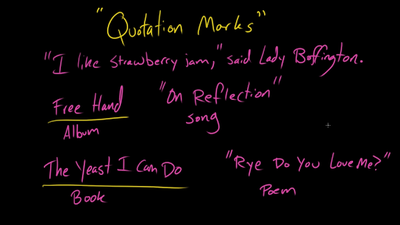 "Quotation Marks"
"I like strawberry jam," said Lady Boffington.
Free Hand "On Reflection"
Album song
The Yeast I Can Do "Rye Do You Love Me?"
Book Poem